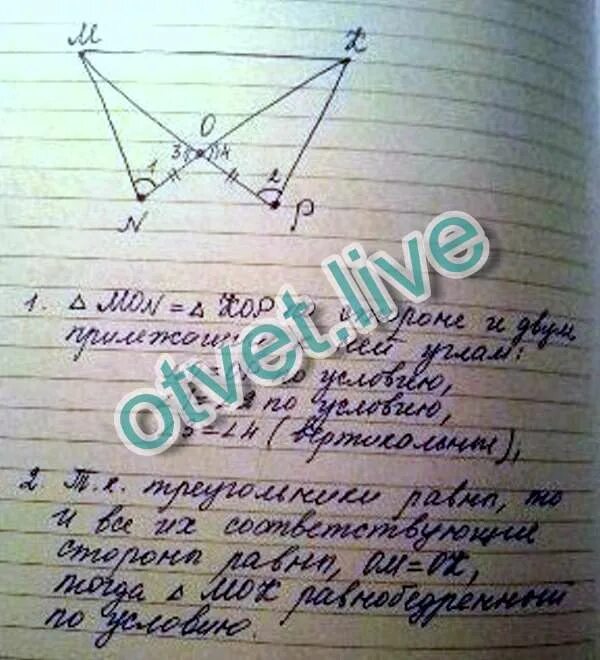 M
X
O
3
4
1
2
N
P
1. △ MON = △ XOP по стороне и двум
прилежащим к ней углам:
по условию,
2 по условию,
3 = ∠4 (вертикальные),
2. Т.к. треугольники равны, то
и все их соответствующие
стороны равны, OM = OX,
тогда △ MOX равнобедренный
по условию.
otvet.live